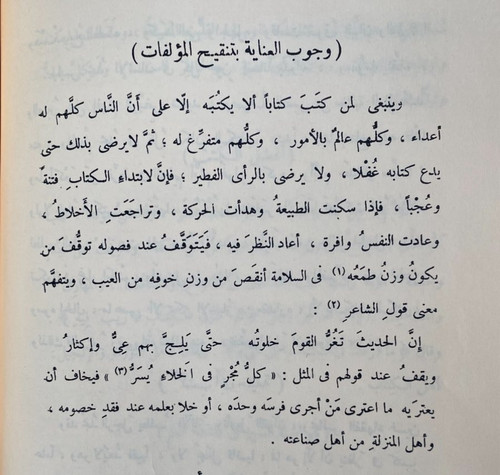 ( وجوب العناية بتنقيح المؤلفات )
وينبغى لمن كتَبَ كتاباً ألا يكتُبَه إلّا على أنَّ النَّاس كلَّهم له
أعداء ، وكلُّهم عالمٌ بالأمور ، وكلُّهم متفرِّغ له ؛ ثمَّ لا يرضى بذلك حتى
يدع كتابه غُفْلا ، ولا يرضى بالرأى الفطير ؛ فإنَّ لابتداءِ الكتابِ فتنةً
وعُجْباً ، فإذا سكنت الطبيعةُ وهدأت الحركة ، وتراجَعَتِ الأخلاطُ ،
وعادت النفسُ وافرة ، أعاد النَّظرَ فيه ، فَيَتَوَقَّفُ عند فصوله توقُّفَ من
يكونُ وزنُ طمَعُه (١) فى السلامة أنقصَ من وزنِ خوفه من العيب ، ويتفهَّم
معنى قولِ الشاعر (٢) :
إنَّ الحديثَ تَغُرُّ القومَ خلوتُه حتَّى يَلِجَّ بهم عِىٌّ وإكثارُ
ويقفُ عند قولهم فى المثل : « كلُّ مُجْرٍ فى الخَلاءِ يُسَرُّ (٣) » فيخاف أن
يعتريه ما اعترى مَنْ أجرى فرسَه وحدَه ، أو خلا بعلمه عند فقدِ خصومه ،
وأهل المنزلةِ من أهل صناعته .